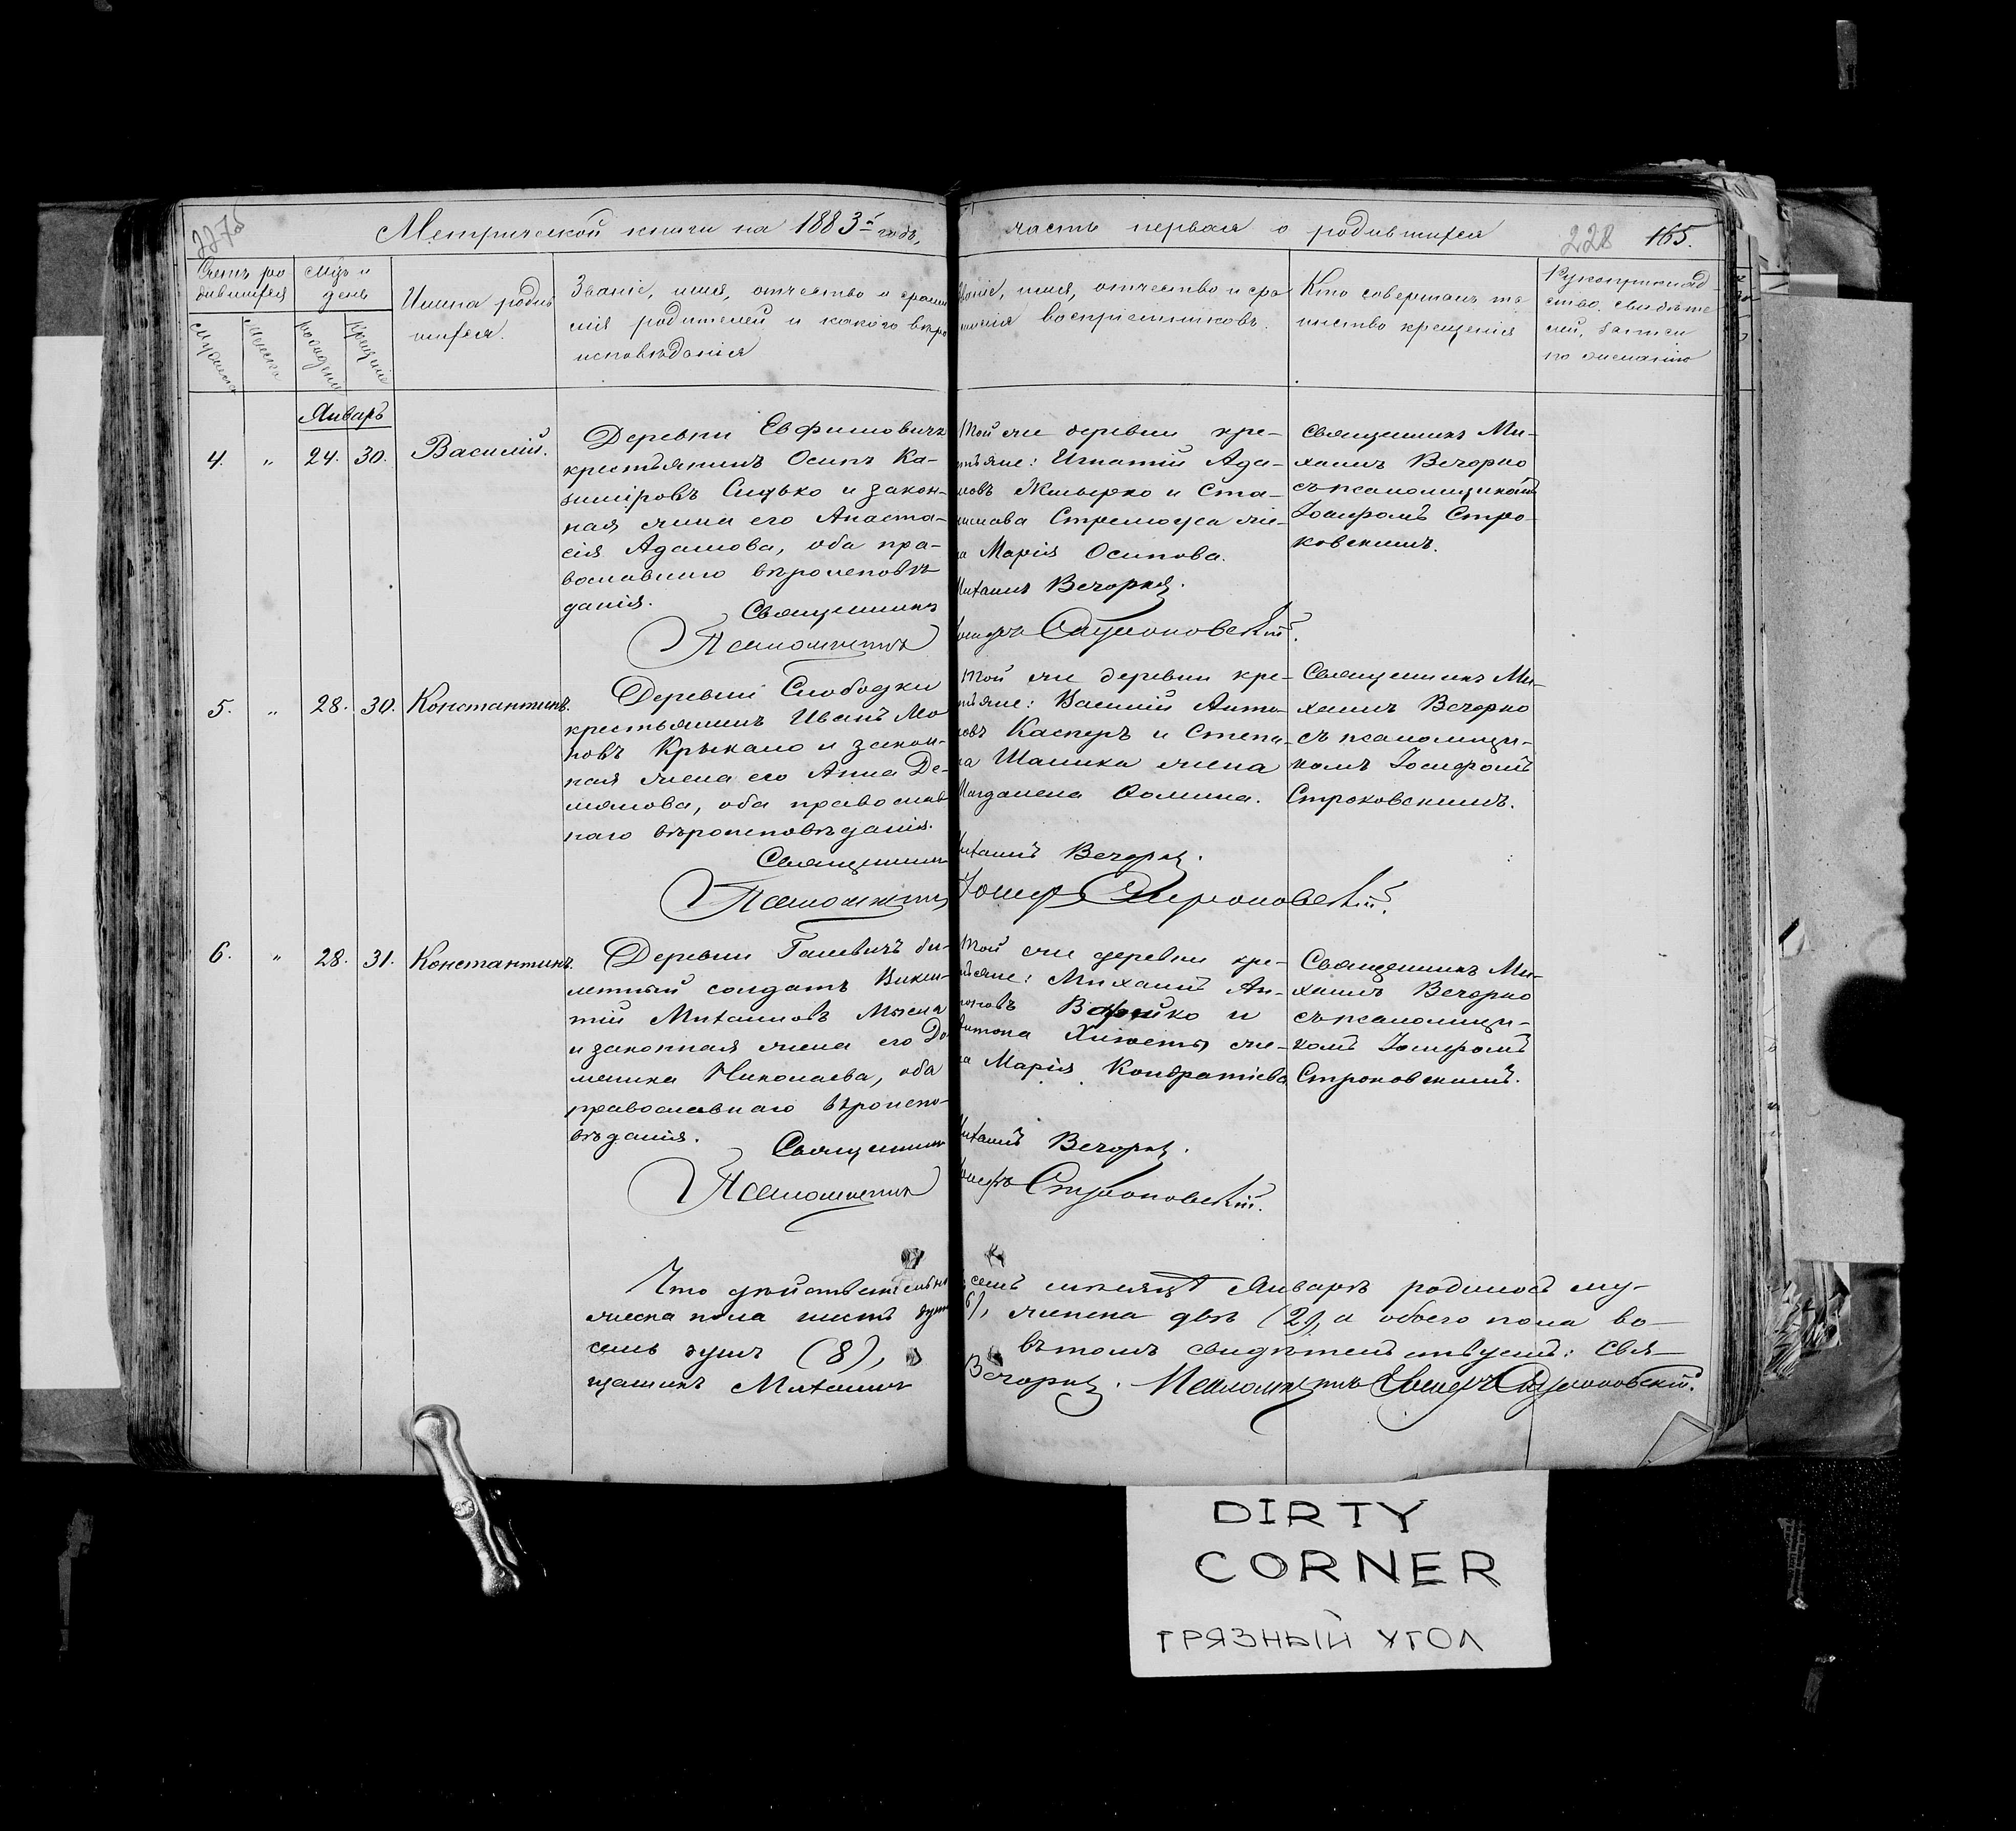 Метрической книги на 1883й годъ,
часть первая о родившихся
228 165.
Счетъ ро
дившихся
Мужска
Женска
Мѣсяцъ и
день
рожденія
крещенія
Имена родив
шихся.
Званіе, имя, отчество и фами
лія родителей и какого вѣро
исповѣданія
Званіе, имя, отчество и фа
милія воспріемниковъ.
Кто совершалъ та
инство крещенія
Рукоприклад
ство свидѣте
лей, записи
по желанію
Январь
4. " 24. 30. Василій.
Деревни Евфимовичъ
крестьянинъ Осипъ Ка-
зиміровъ и закон-
ная жена его Анаста-
сія Адамова, оба пра-
вославнаго вѣроисповѣ
данія.
Священникъ
Псаломщикъ
Той же деревни кре-
стьяне: Игнатій Ада-
мовъ и Ста-
же-
на Марія Осипова.
Михаилъ Вечорко.
Іосифъ Строковскій.
Священникъ Ми-
хаилъ Вечорко
съ псаломщикомъ
Іосифомъ Стро-
ковскимъ.
5. " 28. 30. Константинъ.
Деревни Слободки
крестьянинъ Иванъ
и закон-
ная жена его Анна Де-
мьянова, оба православ
наго вѣроисповѣданія.
Священникъ
Псаломщикъ
Той же деревни кре-
стьяне: Василій Анто-
новъ Касперъ и Степа-
на жена
Магдалена Ѳомина.
Михаилъ Вечорко.
Іосифъ Строковскій.
Священникъ Ми-
хаилъ Вечорко
съ псаломщи-
комъ Іосифомъ
Строковскимъ.
6. " 28. 31. Константинъ.
Деревни би-
летный солдатъ Викен-
тій Михаиловъ
и законная жена его До
меника Николаева, оба
православнаго вѣроиспо-
вѣданія.
Священникъ
Псаломщикъ
Той же деревни кре-
стьяне: Михаилъ Ан-
тоновъ и
Антона же-
на Марія Кондратіева
Михаилъ Вечорко.
Іосифъ Строковскій.
Священникъ Ми-
хаилъ Вечорко
съ псаломщи-
комъ Іосифомъ
Строковскимъ.
Что дѣйствительно въ семъ мѣсяцѣ Январѣ родилось му-
жеска пола шесть душъ (6), женска двѣ (2), а обоего пола во-
семь душъ (8), въ томъ свидѣтельствуемъ: Свя-
щенникъ Михаилъ Вечорко. Псаломщикъ Іосифъ Строковскій.
DIRTY
CORNER
ГРЯЗНЫЙ УГОЛ